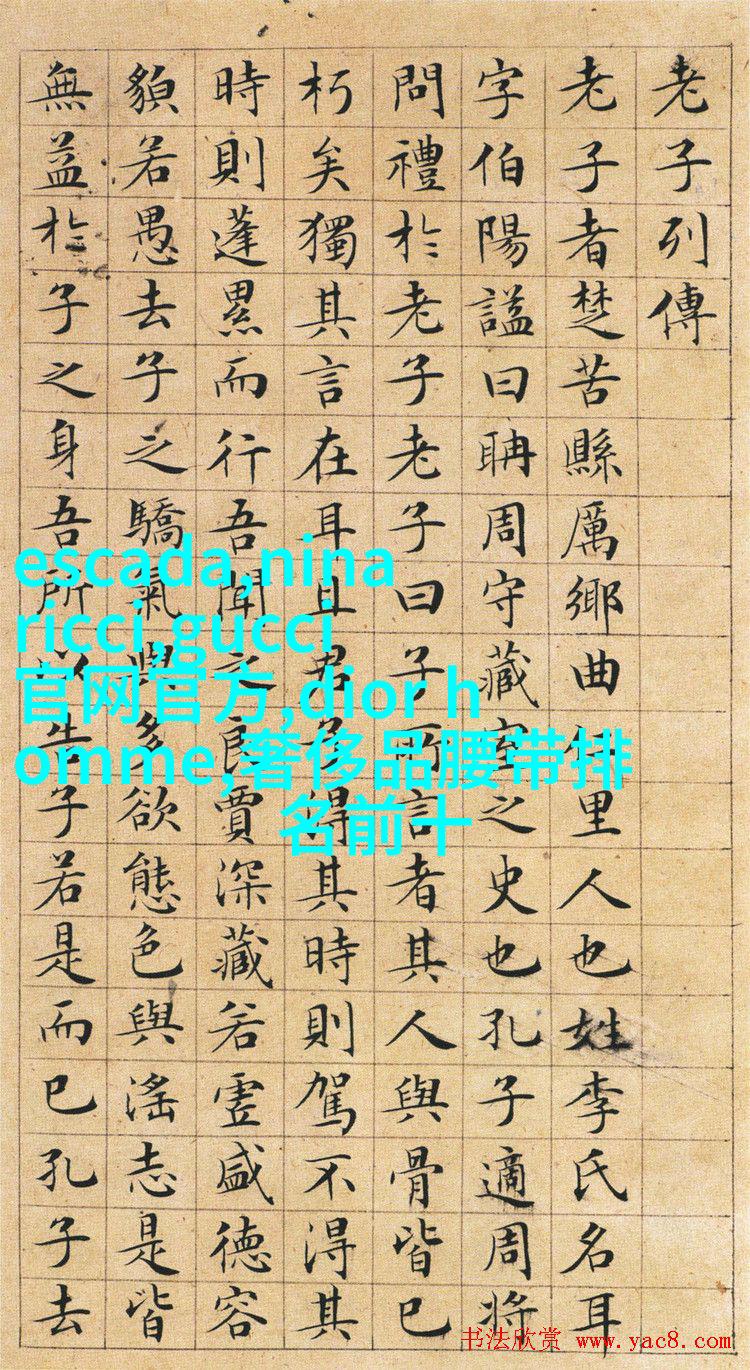 老子列傳
老子者楚苦縣厲鄉曲仁里人也姓李氏名耳
字伯陽謚曰聃周守藏室之史也孔子適周將
問禮於老子老子曰子所言者其人與骨皆已
朽矣獨其言在耳且君子得其時則駕不得其
時則蓬累而行吾聞之良賈深藏若虛盛德容
貌若愚去子之驕氣與多欲態色與淫志是皆
無益於子之身吾所以告子若是而已孔子去
escada,nina
ricci,gucci
官网官方,dior h
omme,奢侈品腰带排
名前十
书法欣赏 www.yac8.com